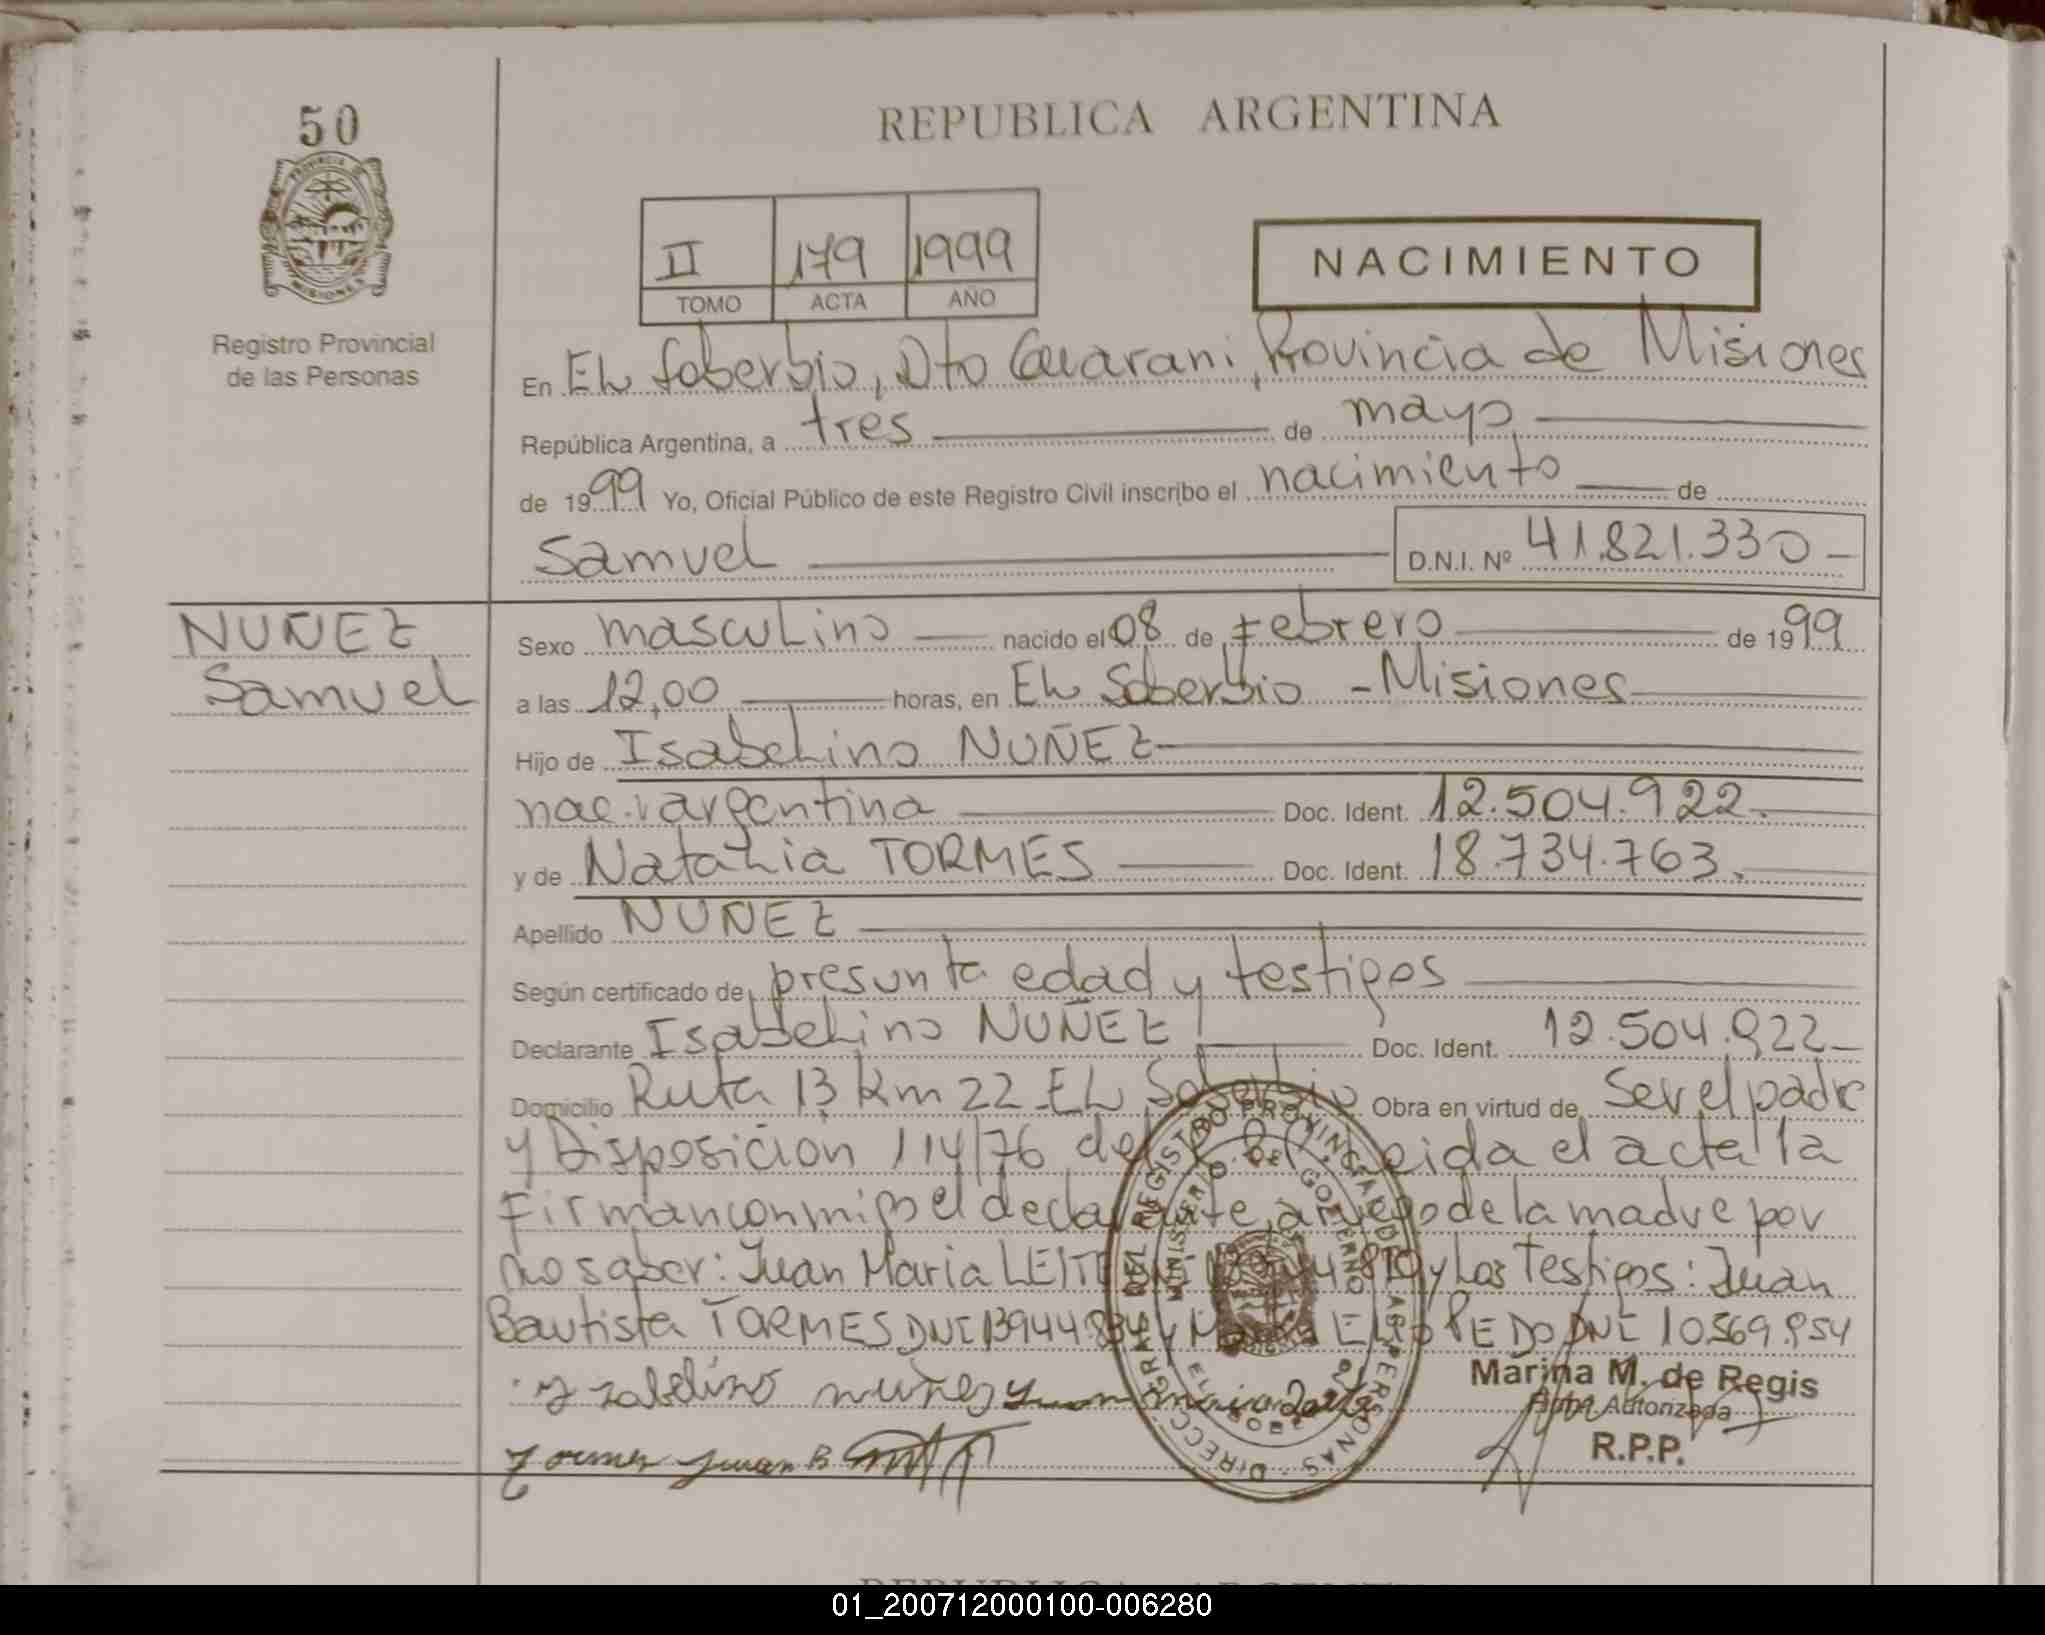 50
REPUBLICA ARGENTINA
PROVINCIA DE MISIONES
II 179 1999
TOMO ACTA AÑO
NACIMIENTO
Registro Provincial
de las Personas
En EL Soberbio, Dto Guarani, Provincia de Misiones
República Argentina, a tres de mayo
de 1999 Yo, Oficial Público de este Registro Civil inscribo el nacimiento de
Samuel D.N.I. Nº 41.821.330
NUÑEZ
Samuel
Sexo masculino nacido el 08 de Febrero de 1999
a las 12,00 horas, en EL Soberbio - Misiones
Hijo de Isabelino NUÑEZ
nac. argentina Doc. Ident. 12.504.922.
y de Natalia TORMES Doc. Ident. 18.734.763.
Apellido NUÑEZ
Según certificado de presunta edad y testigos
Declarante Isabelino NUÑEZ Doc. Ident. 12.504.922
Domicilio Ruta 13 km 22 - EL Soberbio Obra en virtud de Ser el padre
y Disposicion 114/76 del Leida el acta la
Firman conmigo el declarante, a ruego de la madre por
no saber: Juan Maria LEITE y Los Testigos: Juan
Bautista TORMES DNI 13944.834 y DNI 10.569.954
yzabelino nuñez Juan maria Leite
Marina M. de Regis
Autorizada
R.P.P.
Tormes Juan B.
DIRECC. GRAL. DEL REGISTRO PROVINCIAL DE LAS PERSONAS
MINISTERIO DE GOBIERNO
01_200712000100-006280